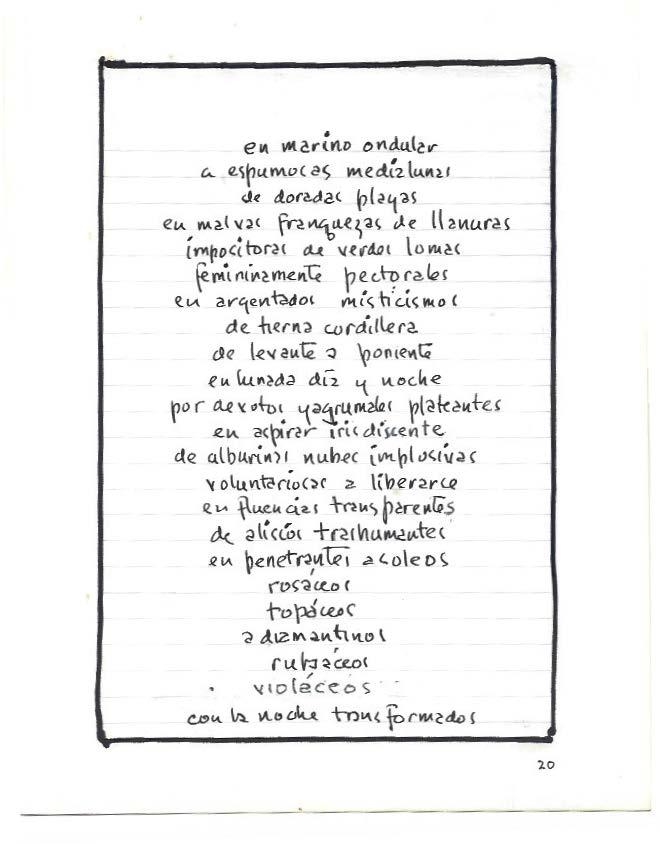 en marino ondular
a espumosas medialunas
de doradas playas
en malvas franquezas de llanuras
impositoras de verdes lomas
femininamente pectorales
en argentados misticismos
de tierna cordillera
de levante a poniente
enlunada día y noche
por devotos yagrumales plateantes
en aspirar irisdiscente
de alburinas nubes implosivas
voluntariosas a liberarse
en fluencias transparentes
de alisios trashumantes
en penetrantes asoleos
rosáceos
topáceos
adiamantinos
rubiáceos
violáceos
con la noche transformados
20